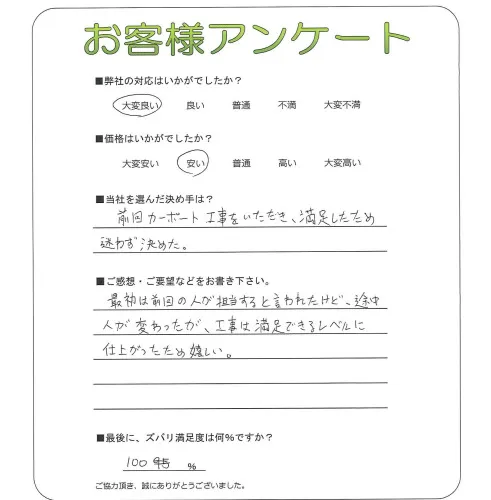 お客様アンケート
■弊社の対応はいかがでしたか?
大変良い 良い 普通 不満 大変不満
■価格はいかがでしたか?
大変安い 安い 普通 高い 大変高い
■当社を選んだ決め手は?
前回カーポート工事をいただき、満足したため
迷わず決めた。
■ご感想・ご要望などをお書き下さい。
最初は前回の人が担当すると言われたけど、途中
人が変わったが、工事は満足できるレベルに
仕上がったため嬉しい。
■最後に、ズバリ満足度は何%ですか?
100 %
ご協力頂き、誠にありがとうございました。